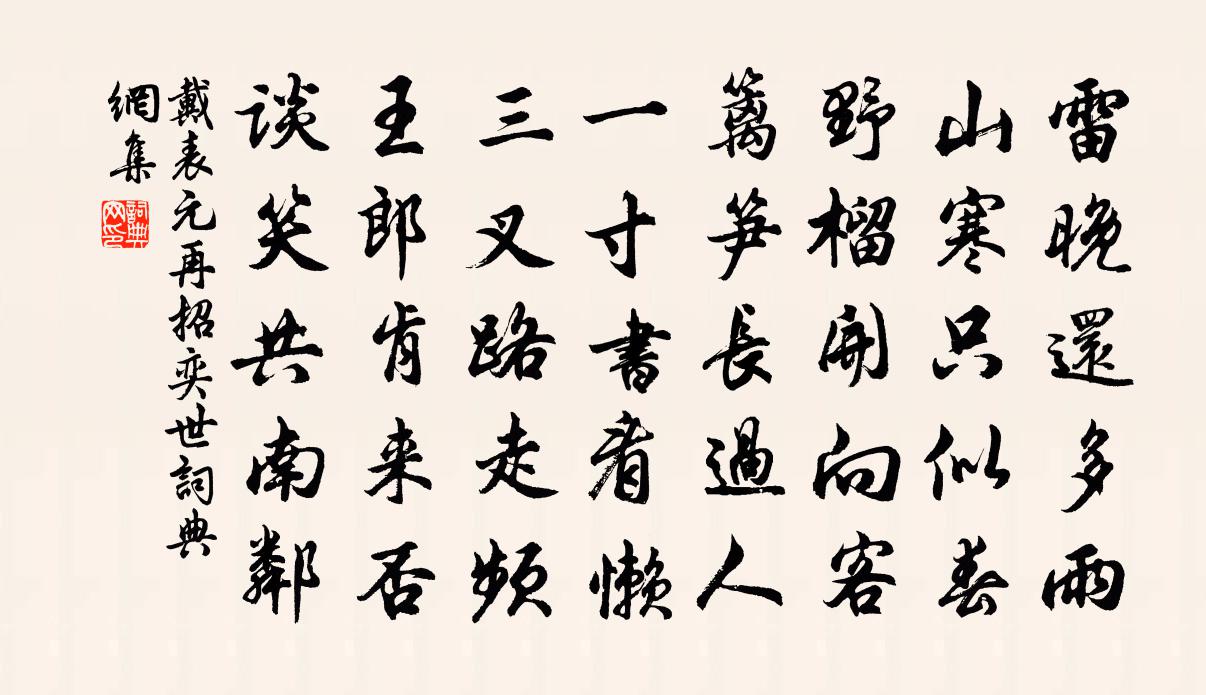 雷晚還多雨
山寒只似春
野榴開向客
籬笋長過人
一寸書看懶
三叉路走頻
王郎肯来否
談笑共南鄰
戴表元再招奕世詞典
網集
詞典網印